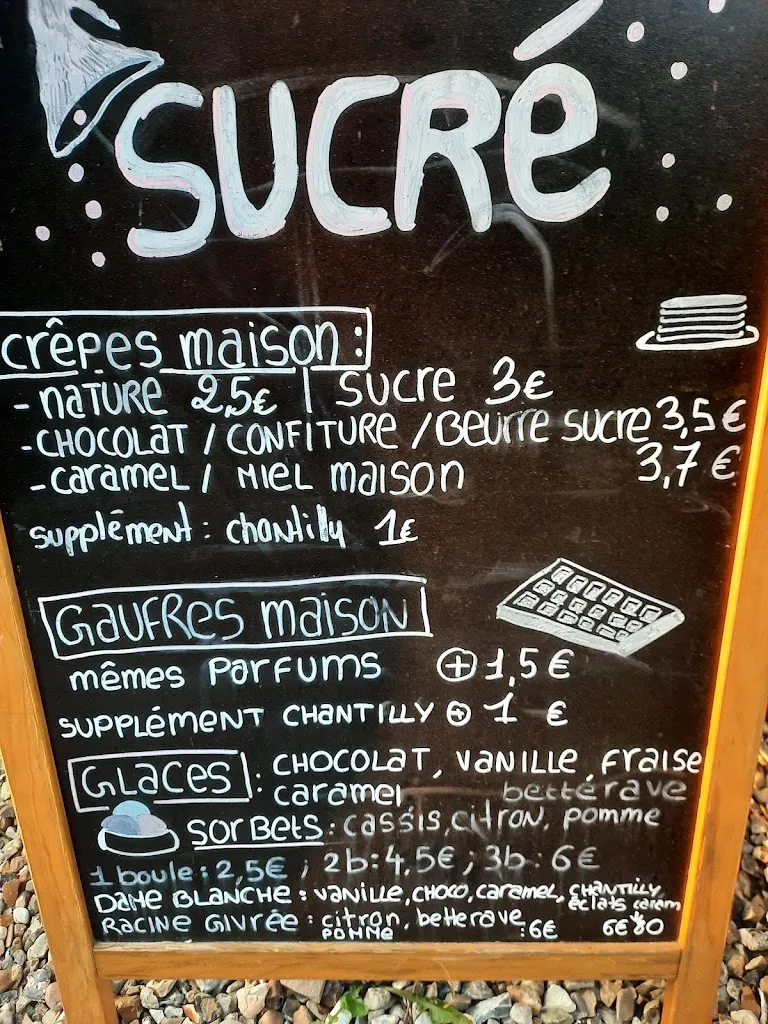 SUCRÉ
crêpes maison :
- NATURE 2,5€ | sucre 3€
- CHOCOLAT / CONFITURE / Beurre sucre 3,5€
- caramel / MIEL maison 3,7€
supplément : chantilly 1€
GAUFRES maison
mêmes PARFUMS + 1,5€
SUPPLÉMENT CHANTILLY + 1 €
GLACES : CHOCOLAT, VANILLE, Fraise
caramel, betterave
SORBETS : cassis, citron, pomme
1 boule : 2,5€ ; 2b : 4,5€ ; 3b : 6€
DAME BLANCHE : vanille, choco, caramel, CHANTILLY,
éclats caram
RACINE GIVRÉE : citron, betterave,
POMME : 6€ 6€80